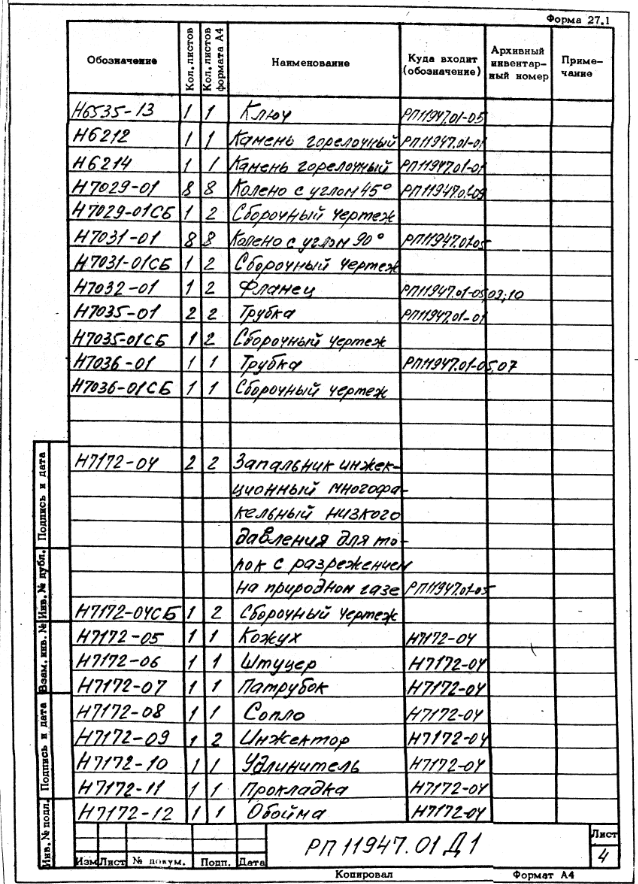 Форма 27.1
Обозначение Кол. листов Кол. листов формата А4 Наименование Куда входит (обозначение) Архивный инвентарный номер Примечание
Н6535-13 1 1 Ключ РП11947.01-05
Н6212 1 1 Камень горелочный РП11947.01-01
Н6214 1 1 Камень горелочный РП11947.01-01
Н7029-01 8 8 Колено с углом 45° РП11947.01-09
Н7029-01СБ 1 2 Сборочный чертеж
Н7031-01 8 8 Колено с углом 90° РП11947.01-05
Н7031-01СБ 1 2 Сборочный чертеж
Н7032-01 1 2 Фланец РП11947.01-05,03;10
Н7035-01 2 2 Трубка РП11947.01-01
Н7035-01СБ 1 2 Сборочный чертеж
Н7036-01 1 1 Трубка РП11947.01-05,07
Н7036-01СБ 1 1 Сборочный чертеж
Н7172-04 2 2 Запальник инжек-
ционный многофа-
кельный низкого
давления для то-
пок с разрежением
на природном газе РП11947.01-05
Н7172-04СБ 1 2 Сборочный чертеж
Н7172-05 1 1 Кожух Н7172-04
Н7172-06 1 1 Штуцер Н7172-04
Н7172-07 1 1 Патрубок Н7172-04
Н7172-08 1 1 Сопло Н7172-04
Н7172-09 1 2 Инжектор Н7172-04
Н7172-10 1 1 Удлинитель Н7172-04
Н7172-11 1 1 Прокладка Н7172-04
Н7172-12 1 1 Обойма Н7172-04
Подпись и дата
Инв. № дубл.
Взам. инв. №
Подпись и дата
Инв. № подл.
РП 11947.01 Д1
Лист
4
Изм Лист № докум. Подп. Дата
Копировал Формат А4